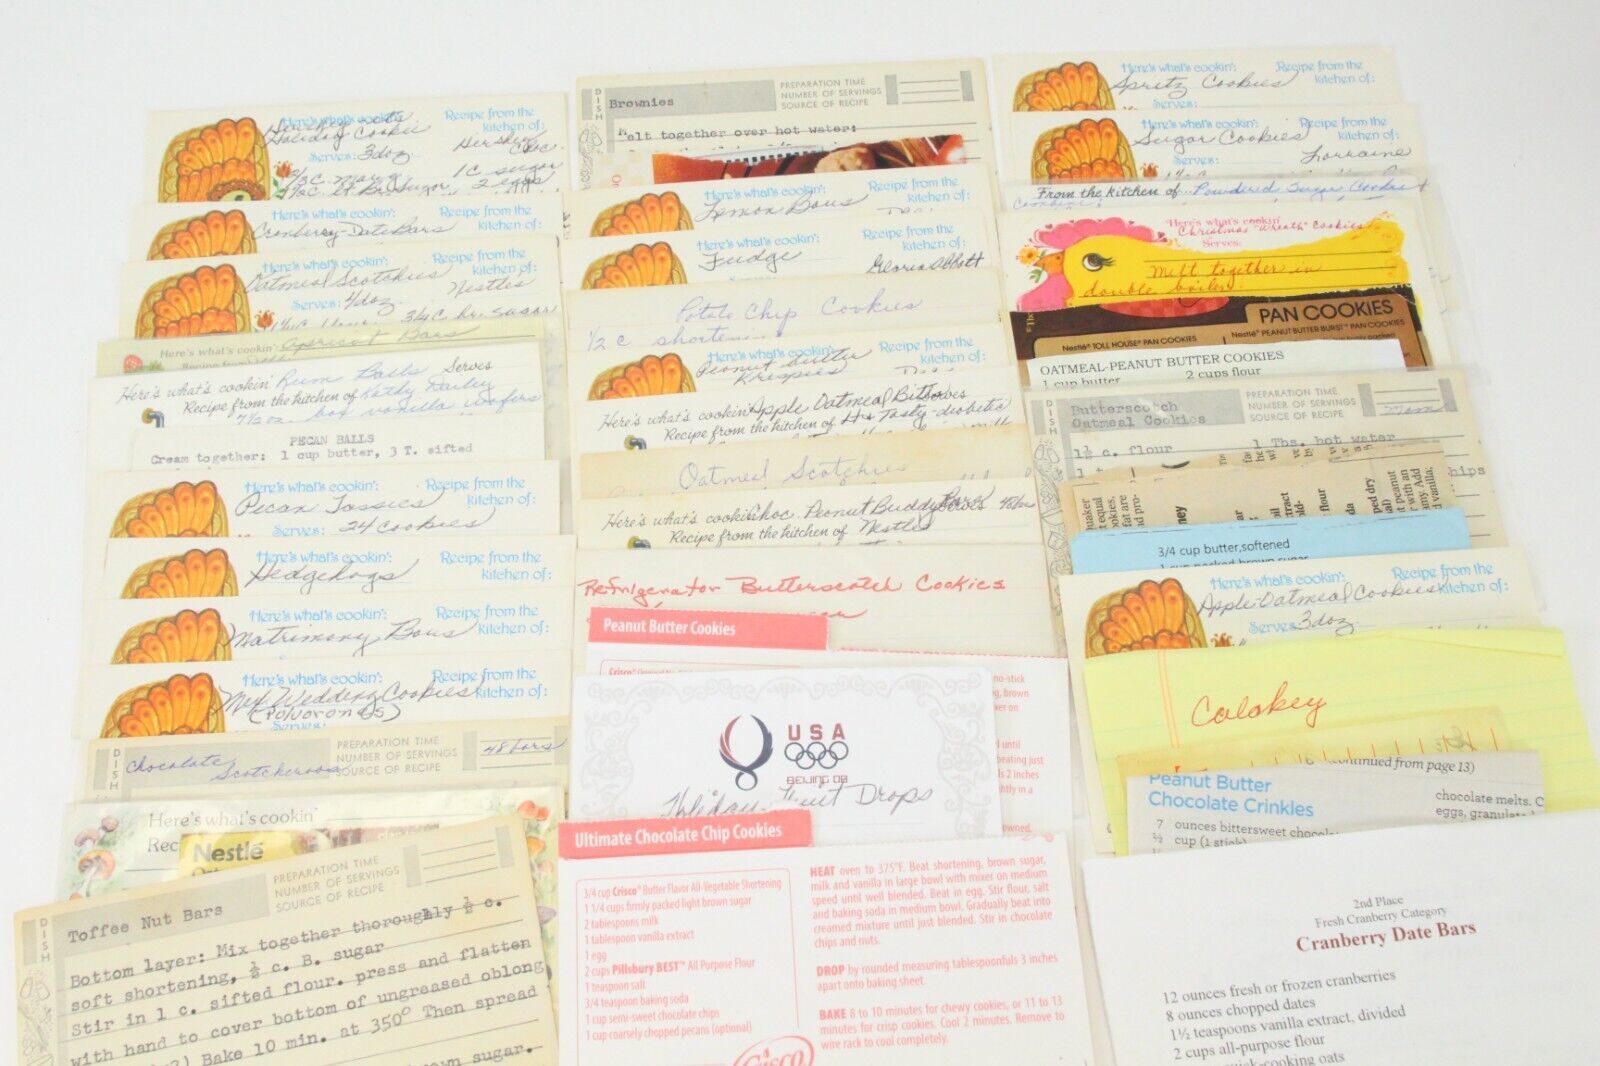 Here's what's cookin':
Holiday Cookie
Recipe from the
kitchen of:
Hershey
Choc.
Serves: 3 doz
1 C sugar
2/3 C. Marg.
2 eggs
Here's what's cookin':
Recipe from the
kitchen of:
Cranberry-Date Bars
Here's what's cookin':
Recipe from the
kitchen of:
Oatmeal Scotchies
Nestles
Serves: 4 doz
3/4 C. br. sugar
Here's what's cookin'
Apricot Bars
Recipe from
Here's what's cookin' Rum Balls Serves
Recipe from the kitchen of Kathy
7 1/2 oz. box vanilla wafers
PECAN BALLS
Cream together: 1 cup butter, 3 T. sifted
Here's what's cookin':
Recipe from the
kitchen of:
Pecan Tassies
Serves: 24 cookies
Here's what's cookin':
Recipe from the
kitchen of:
Hedgehogs
Here's what's cookin':
Recipe from the
kitchen of:
Matrimony Bars
Here's what's cookin':
Recipe from the
kitchen of:
Mex Wedding Cookies
(Polvorones)
Serves:
DISH
Chocolate
Scotcheroos
PREPARATION TIME
NUMBER OF SERVINGS
SOURCE OF RECIPE
48 bars
Here's what's cookin'
Rec
Nestlé
DISH
Toffee Nut Bars
PREPARATION TIME
NUMBER OF SERVINGS
SOURCE OF RECIPE
Bottom layer: Mix together thoroughly ½ c.
soft shortening, ½ c. B. sugar
Stir in 1 c. sifted flour. press and flatten
with hand to cover bottom of ungreased oblong
Bake 10 min. at 350° Then spread
sugar.
DISH
Brownies
PREPARATION TIME
NUMBER OF SERVINGS
SOURCE OF RECIPE
Melt together over hot water:
Here's what's cookin':
Recipe from the
kitchen of:
Lemon Bars
Here's what's cookin':
Recipe from the
kitchen of:
Fudge
Gloria Abbott
Potato Chip Cookies
1/2 C shortening
Here's what's cookin':
Recipe from the
kitchen of:
Peanut Butter
Krispies
Here's what's cookin' Apple Oatmeal Bites
Recipe from the kitchen of Lt & Tasty-diabetic
Oatmeal Scotchies
Here's what's cookin' Choc. Peanut Buddy Bars
Serves 48 bars
Recipe from the kitchen of Nestles
Refrigerator Butterscotch Cookies
Peanut Butter Cookies
USA
BEIJING 08
Holiday Fruit Drops
Ultimate Chocolate Chip Cookies
3/4 cup Crisco® Butter Flavor All-Vegetable Shortening
1 1/4 cups firmly packed light brown sugar
2 tablespoons milk
1 tablespoon vanilla extract
1 egg
2 cups Pillsbury BEST™ All Purpose Flour
1 teaspoon salt
3/4 teaspoon baking soda
1 cup semi-sweet chocolate chips
1 cup coarsely chopped pecans (optional)
Crisco
HEAT oven to 375°F. Beat shortening, brown sugar,
milk and vanilla in large bowl with mixer on medium
speed until well blended. Beat in egg. Stir flour, salt
and baking soda in medium bowl. Gradually beat into
creamed mixture until just blended. Stir in chocolate
chips and nuts.
DROP by rounded measuring tablespoonfuls 3 inches
apart onto baking sheet.
BAKE 8 to 10 minutes for chewy cookies, or 11 to 13
minutes for crisp cookies. Cool 2 minutes. Remove to
wire rack to cool completely.
Here's what's cookin':
Recipe from the
kitchen of:
Spritz Cookies
Serves:
Here's what's cookin':
Recipe from the
kitchen of:
Sugar Cookies
Lorraine
From the kitchen of... Powdered Sugar Cookie
Here's what's cookin'
Christmas "Wreath" Cookies
Serves:
Melt together in
double boiler
PAN COOKIES
Nestlé® TOLL HOUSE® PAN COOKIES
Nestlé® PEANUT BUTTER BURST™ PAN COOKIES
OATMEAL-PEANUT BUTTER COOKIES
1 cup butter
2 cups flour
DISH
Butterscotch
Oatmeal Cookies
PREPARATION TIME
NUMBER OF SERVINGS
SOURCE OF RECIPE
Mom
1½ c. flour
1 Tbs. hot water
3/4 cup butter, softened
Here's what's cookin':
Recipe from the
kitchen of:
Apple-Oatmeal Cookies
Serves: 3 doz
Colokey
(continued from page 13)
Peanut Butter
Chocolate Crinkles
7 ounces bittersweet
½ cup (1 stick)
chocolate melts. C
eggs, granulate
2nd Place
Fresh Cranberry Category
Cranberry Date Bars
12 ounces fresh or frozen cranberries
8 ounces chopped dates
1½ teaspoons vanilla extract, divided
2 cups all-purpose flour
quick-cooking oats